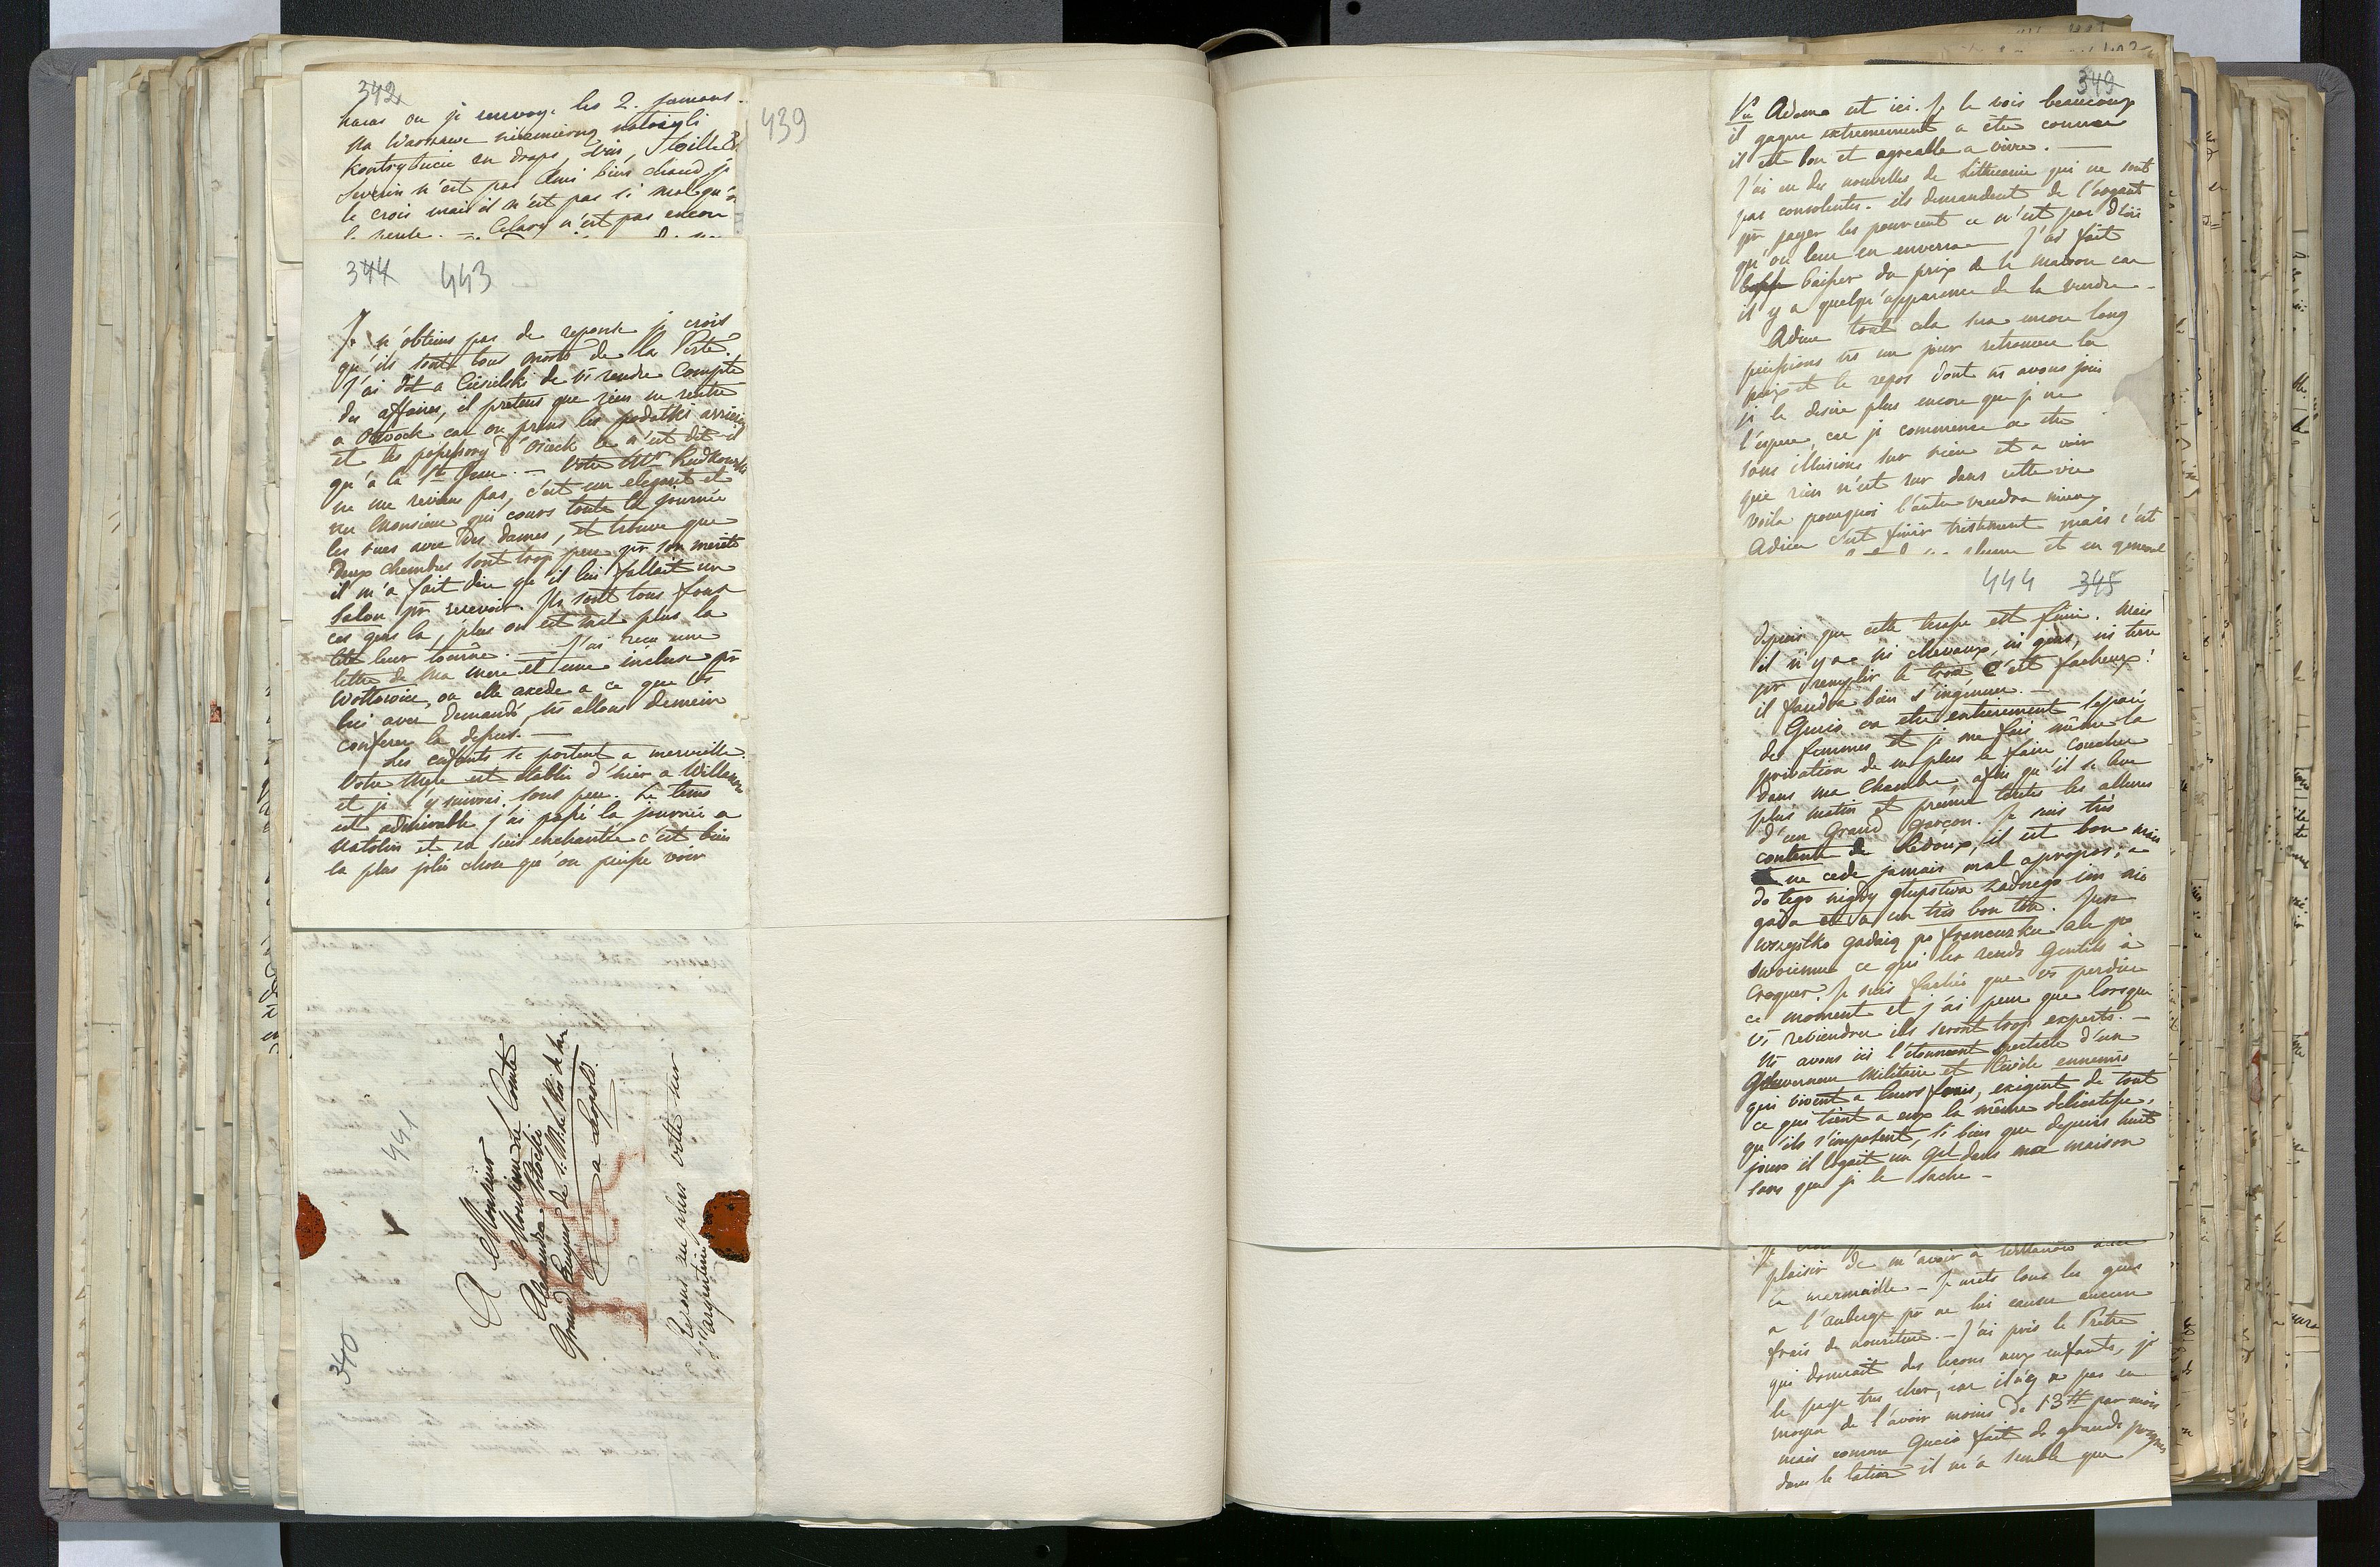 342
haras ou je envoye les 2. jumens.
Na Warszawe niezmierną nałożyli
kontrybucie en draps, vin, toilles
Severin n'est pas Ami bien chaud je
le crois mais il n'est pas si mal qu'
n'est pas encore
439
344 443
Je n'obtiens pas de reponse je crois
qu'ils sont tous morts de la Peste.
J'ai dit a Ciesielski de vs rendre Compte
des affaires, il pretens que rien ne rentre
a Otwock car on prens les podatki
et les possessory d'Osieck ce n'est dit-il
qu'à la St Jean. — Votre Mr
ne me reviens pas, c'est un elegant et
un Monsieur qui cours toute la journée
les rues avec des dames, et trouve que
deux chambres sont trop peu pr son merite
il m'a fait dire qu'il lui fallait un
Salon pr recevoir. Ils sont tous fous
ces gens la, plus on est mal plus la
tete leur tourne. — J'ai recu une
lettre de Ma mere et une incluse pr
ou elle accede a ce que vs
lui avez demandé, ns allons demain
conferer la dessus. —
Les enfants se portent a merveille.
Votre Mere est etablie d'hier a Willanow
et je l'y suivrai sous peu. Le tems
est admirable j'ai passé la journée a
Natolin et en suis enchantée c'est bien
la plus jolie chose qu'on puisse voir
441
A Monsieur
Monsieur le Comte
Alexandre Potocki
Grand Ecuyer de S. M. le Roi de Saxe
a Leopold.
340
Pr Adam est ici. Je le vois beaucoup
il gagne extremement a être connu
il est bon et agreable a vivre. —
J'ai eu des nouvelles de Lithuanie qui ne sont
pas consolentes. ils demandent de l'argent
pr payer les ce n'est pas d'ici
qu'on leur en enverra — J'ai fait
baisser du prix de la maison car
il y a quelqu'apparence de la vendre —
Adieu tout cela sera encore long
puissions ns un jour retrouver la
paix et le repos dont ns avons joui
je le desire plus encore que je ne
l'espere, car je commence a etre
sans illusions sur rien et a voir
que rien n'est sur dans cette vie
voila pourquoi l'autre vaudra mieux
Adieu c'est finir tristement mais c'est
et en general
349
444 345
depuis que cette lampe est finie. Mais
il n'y a ni chevaux, ni gens, ni terre
pr remplir le trou. C'est facheux!
il faudra bien s'ingenier. —
Gucio va etre entierement separé
des femmes et je me fais même la
privation de ne plus le faire coucher
dans ma Chambre afin qu'il se leve
plus matin et prenne toutes les allures
d'un Grand Garçon. Je suis très
contente de Ledoux, il est bon mais
ne cede jamais mal apropos, a
do tego nigdy głupstwa żadnego im nie
gada et a un très bon ton. Już
wszystko gadaią po francuzku ale po
swoiemu ce qui les rends Gentils à
croquer. Je suis fachée que vs perdiez
ce moment et j'ai peur que lorsque
vs reviendrez ils seront trop experts. —
Ns avons ici l'etonnent spectacle d'un
Gouverneur Militaire et Civile ennemis
qui vivent a leurs frais, exigent de tout
ce qui tient a eux la même delicatesse,
qu'ils s'imposent, si bien que depuis huit
jours il logeait un Gal dans ma maison
sans que je le sache —
plaisir de m'avoir à Willanow avec
ca marmaille — Je mets tous les gens
a l'auberge pr ne lui causer aucun
frais de nouriture. — J'ai pris le Prêtre
qui donnait des lecons aux enfants, je
le paye tres cher, car il n'y a pas eu
moyen de l'avoir moins de 13 # par mois
mais comme Gucio fait de grands progres
dans le latin il m'a semblé que